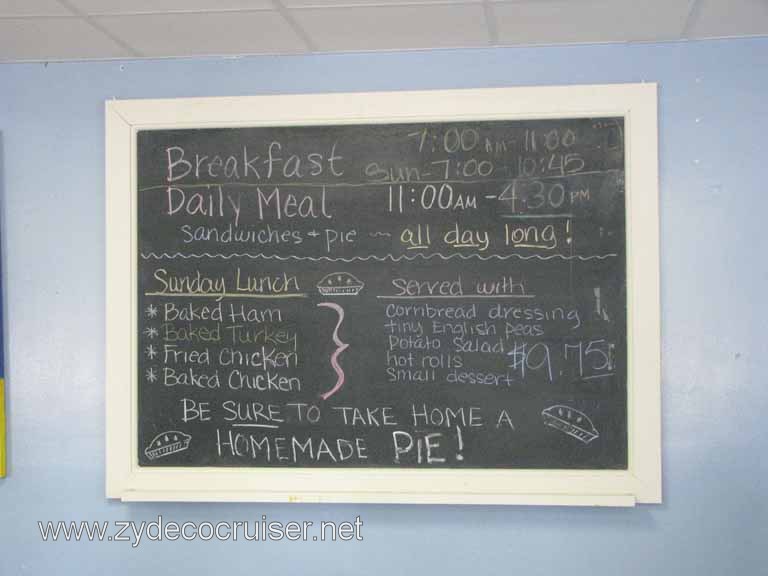 Breakfast 7:00 AM - 11:00
Sun - 7:00 - 10:45
Daily Meal 11:00 AM - 4:30 PM
sandwiches + pie ~ all day long!
Sunday Lunch
Served with
* Baked Ham
* Baked Turkey
* Fried Chicken
* Baked Chicken
cornbread dressing
tiny English peas
potato salad
hot rolls
small dessert
$9.75
BE SURE TO TAKE HOME A
HOMEMADE PIE!
www.zydecocruiser.net